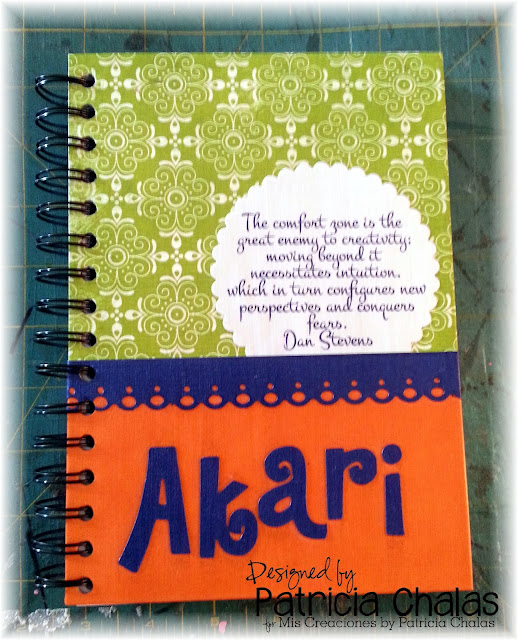 The comfort zone is the
great enemy to creativity;
moving beyond it
necessitates intuition,
which in turn configures new
perspectives and conquers
fears.
Dan Stevens
Akari
Designed by
Patricia Chalas
for Mis Creaciones by Patricia Chalas